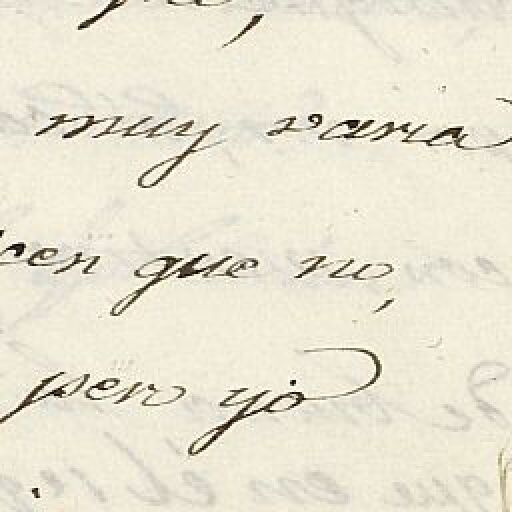 muy varia
cen que no,
pero yo